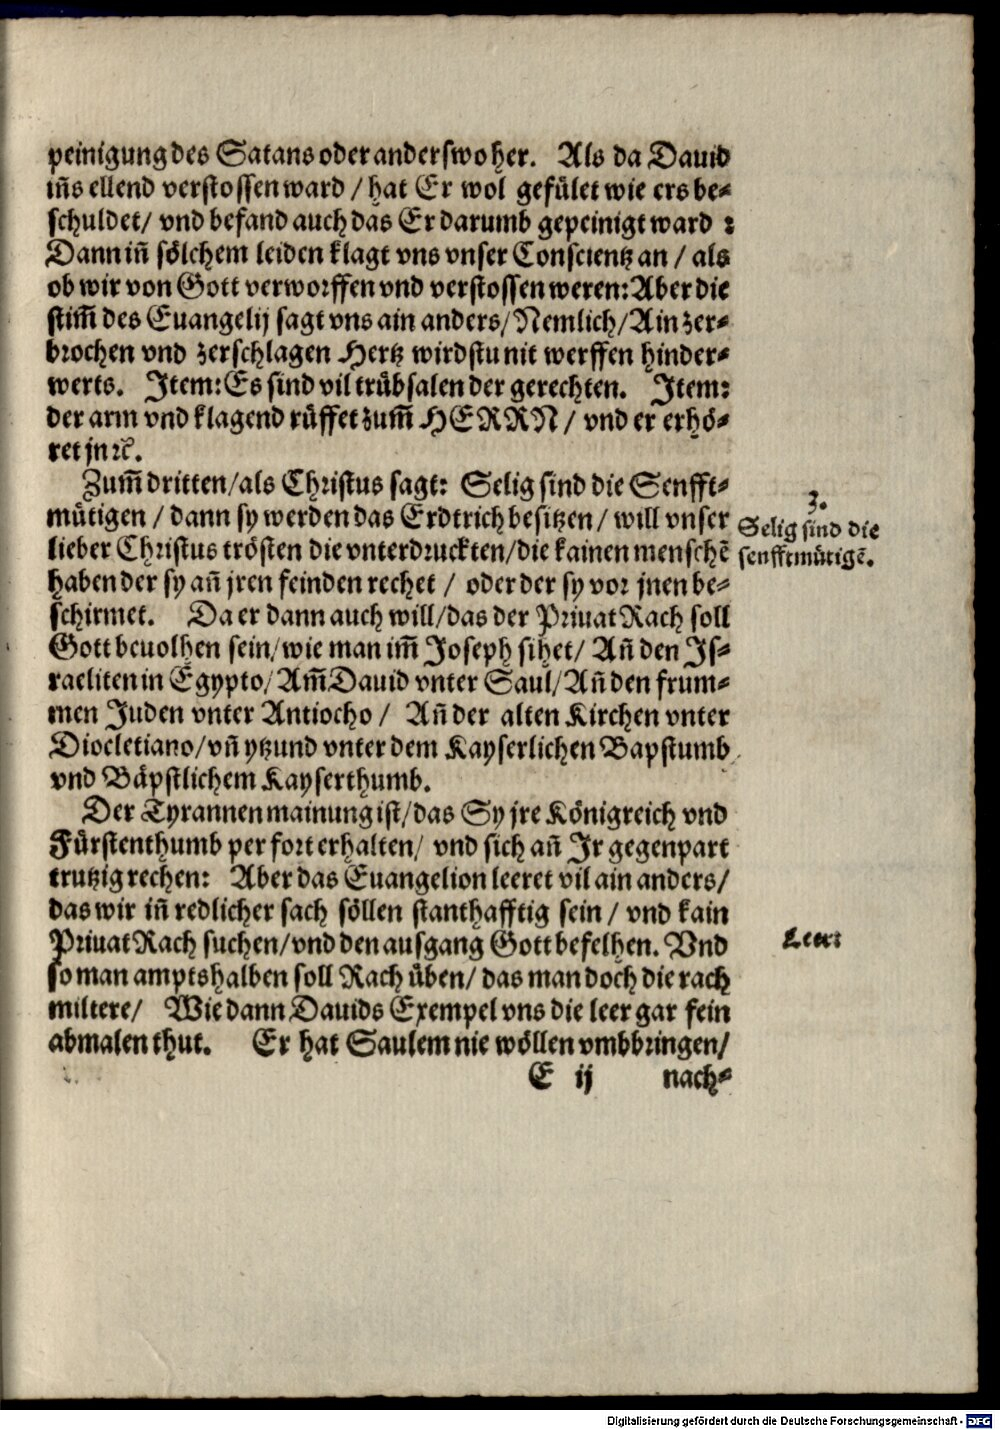 peinigung des Satans oder anderswo her. Als da Dauid
iñs ellend verstossen ward / hat Er wol gefület wie ers be-
schuldet / vnd befand auch das Er darumb gepeinigt ward :
Dann iñ sölchem leiden klagt vns vnser Conscientz an / als
ob wir von Gott verworffen vnd verstossen weren: Aber die
stim̃ des Euangelij sagt vns ain anders / Nemlich / Ain zer-
brochen vnd zerschlagen Hertz wirdstu nit werffen hinder-
werts. Item: Es sind vil trübsalen der gerechten. Item:
der arm vnd klagend rüffet zum̃ HERRN / vnd er erhö-
ret jn ꝛc̃.
Zum̃ dritten / als Christus sagt: Selig sind die Senfft-
mütigen / dann sy werden das Erdtrich besitzen / will vnser
lieber Christus trösten die vnterdruckten / die kainen menschẽ
haben der sy añ jren feinden rechet / oder der sy vor jnen be-
schirmet. Da er dann auch will / das der Priuat Rach soll
Gott beuolhen sein / wie man im̃ Joseph sihet / Añ den Is-
raeliten in Egypto / Am̃ Dauid vnter Saul / Añ den frum-
men Juden vnter Antiocho / Añ der alten Kirchen vnter
Diocletiano / vñ ytzund vnter dem Kayserlichen Bapstumb
vnd Bäpstlichem Kayserthumb.
3.
Selig sind die
senfftmütigẽ.
Der Tyrannen mainung ist / das Sy jre Königreich vnd
Fürstenthumb per fort erhalten / vnd sich añ Ir gegenpart
trutzig rechen: Aber das Euangelion leeret vil ain anders /
das wir iñ redlicher sach söllen stanthafftig sein / vnd kain
Priuat Rach suchen / vnd den ausgang Gott befelhen. Vnd
so man amptshalben soll Rach üben / das man doch die rach
miltere / Wie dann Dauids Exempel vns die leer gar fein
abmalen thut. Er hat Saulem nie wöllen vmbbringen /
Leer:
E ij nach-
Digitalisierung gefördert durch die Deutsche Forschungsgemeinschaft - DFG